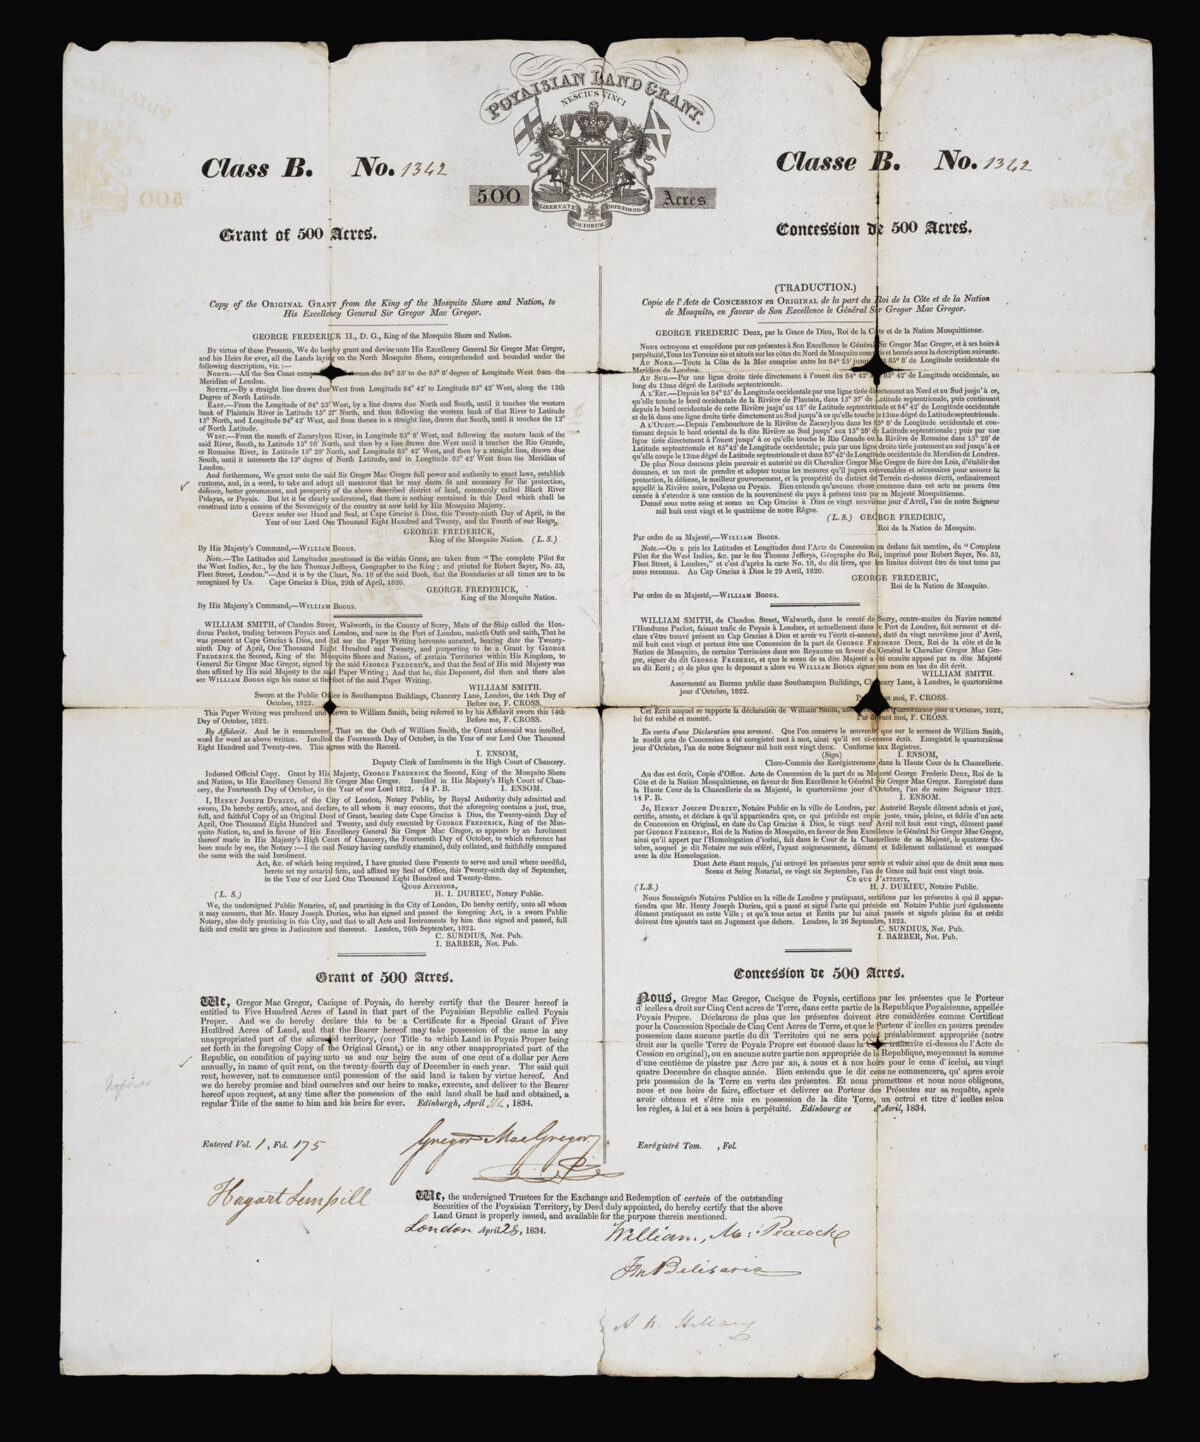 POYAISIAN LAND GRANT.
NESCIUS VINCI
Class B. No. 1342
500 Acres
LIBERTATE DEFENDENDA
Classe B. No. 1342
Grant of 500 Acres.
Copy of the ORIGINAL GRANT from the King of the Mosquito Shore and Nation, to
His Excellency General Sir Gregor Mac Gregor.
GEORGE FREDERICK II., D. G., King of the Mosquito Shore and Nation.
By virtue of these Presents, We do hereby grant and devise unto His Excellency General Sir Gregor Mac Gregor,
and his Heirs for ever, all the Lands laying on the North Mosquito Shore, comprehended and bounded under the
following description, viz.:—
NORTH.—All the Sea Coast comprised between the 84° 25' to the 85° 8' degree of Longitude West from the
Meridian of London.
SOUTH.—By a straight line drawn due West from Longitude 84° 42' to Longitude 85° 42' West, along the 13th
Degree of North Latitude.
EAST.—From the Longitude of 84° 25' West, by a line drawn due North and South, until it touches the western
bank of Plaintain River in Latitude 15° 27' North, and then following the western bank of that River to Latitude
15° North, and Longitude 84° 42' West, and from thence in a straight line, drawn due South, until it touches the 13°
of North Latitude.
WEST.—From the mouth of Zacarylyon River, in Longitude 85° 8' West, and following the eastern bank of the
said River, South, to Latitude 15° 28' North, and then by a line drawn due West until it touches the Rio Grande,
or Romaine River, in Latitude 15° 28' North, and Longitude 85° 42' West, and then by a straight line, drawn due
South, until it intersects the 13° degree of North Latitude, and in Longitude 85° 42' West from the Meridian of
London.
And furthermore, We grant unto the said Sir Gregor Mac Gregor full power and authority to enact laws, establish
customs, and, in a word, to take and adopt all measures that he may deem fit and necessary for the protection,
defence, better government, and prosperity of the above described district of land, commonly called Black River
Polayas, or Poyais. But let it be clearly understood, that there is nothing contained in this Deed which shall be
construed into a cession of the Sovereignty of the country as now held by His Mosquito Majesty.
GIVEN under our Hand and Seal, at Cape Gracias à Dios, this Twenty-ninth Day of April, in the
Year of our Lord One Thousand Eight Hundred and Twenty, and the Fourth of our Reign.
GEORGE FREDERICK,
King of the Mosquito Nation. (L. S.)
By His Majesty's Command,—WILLIAM BOGGS.
Note.—The Latitudes and Longitudes mentioned in the within Grant, are taken from "The complete Pilot for
the West Indies, &c., by the late Thomas Jefferys, Geographer to the King; and printed for Robert Sayer, No. 53,
Fleet Street, London."—And it is by the Chart, No. 18 of the said Book, that the Boundaries at all times are to be
recognized by Us. Cape Gracias à Dios, 29th of April, 1820.
GEORGE FREDERICK,
King of the Mosquito Nation.
By His Majesty's Command,—WILLIAM BOGGS.
WILLIAM SMITH, of Clandon Street, Walworth, in the County of Surry, Mate of the Ship called the Hon-
duras Packet, trading between Poyais and London, and now in the Port of London, maketh Oath and saith, That he
was present at Cape Gracias à Dios, and did see the Paper Writing hereunto annexed, bearing date the Twenty-
ninth Day of April, One Thousand Eight Hundred and Twenty, and purporting to be a Grant by GEORGE
FREDERICK the Second, King of the Mosquito Shore and Nation, of certain Territories within his Kingdom, to
General Sir Gregor Mac Gregor, signed by the said GEORGE FREDERICK, and that the Seal of His said Majesty was
then affixed by His said Majesty to the said Paper Writing; And that he, this Deponent, did then and there also
see WILLIAM BOGGS sign his name at the foot of the said Paper Writing.
WILLIAM SMITH.
Sworn at the Public Office in Southampton Buildings, Chancery Lane, London, the 14th Day of
October, 1822. Before me, F. CROSS.
This Paper Writing was produced and shewn to William Smith, being referred to by his Affidavit sworn this 14th
Day of October, 1822. Before me, F. CROSS.
By Affidavit. And be it remembered, That on the Oath of William Smith, the Grant aforesaid was inrolled,
word for word as above written. Inrolled the Fourteenth Day of October, in the Year of our Lord One Thousand
Eight Hundred and Twenty-two. This agrees with the Record.
I. ENSOM,
Deputy Clerk of Inrolments in the High Court of Chancery.
Indorsed Official Copy. Grant by His Majesty, GEORGE FREDERICK the Second, King of the Mosquito Shore
and Nation, to His Excellency General Sir Gregor Mac Gregor. Inrolled in His Majesty's High Court of Chan-
cery, the Fourteenth Day of October, in the Year of our Lord 1822. 14 P. B. I. ENSOM.
I, HENRY JOSEPH DURIEU, of the City of London, Notary Public, by Royal Authority duly admitted and
sworn, Do hereby certify, attest, and declare, to all whom it may concern, that the foregoing contains a just, true,
full, and faithful Copy of an Original Deed of Grant, bearing date Cape Gracias à Dios, the Twenty-ninth Day of
April, One Thousand Eight Hundred and Twenty, and duly executed by GEORGE FREDERICK, King of the Mos-
quito Nation, to, and in favour of His Excellency General Sir Gregor Mac Gregor, as appears by an Inrolment
thereof made in His Majesty's High Court of Chancery, the Fourteenth Day of October, to which reference has
been made by me, the Notary:—I the said Notary having carefully examined, duly collated, and faithfully compared
the same with the said Inrolment.
Act, &c. of which being required, I have granted these Presents to serve and avail where needful,
hereto set my notarial firm, and affixed my Seal of Office, this Twenty-sixth day of September,
in the Year of our Lord One Thousand Eight Hundred and Twenty-three.
QUOD ATTESTOR,
(L. S.) H. I. DURIEU, Notary Public.
We, the undersigned Public Notaries, of, and practising in the City of London, Do hereby certify, unto all whom
it may concern, that Mr. Henry Joseph Durieu, who has signed and passed the foregoing Act, is a sworn Public
Notary, also duly practising in this City, and that to all Acts and Instruments by him thus signed and passed, full
faith and credit are given in Judicature and thereout. London, 26th September, 1823.
C. SUNDIUS, Not. Pub.
I. BARBER, Not. Pub.
Grant of 500 Acres.
We, Gregor Mac Gregor, Cacique of Poyais, do hereby certify that the Bearer hereof is
entitled to Five Hundred Acres of Land in that part of the Poyaisian Republic called Poyais
Proper. And we do hereby declare this to be a Certificate for a Special Grant of Five
Hundred Acres of Land, and that the Bearer hereof may take possession of the same in any
unappropriated part of the aforesaid territory, (our Title to which Land in Poyais Proper being
set forth in the foregoing Copy of the Original Grant,) or in any other unappropriated part of the
Republic, on condition of paying unto us and our heirs the sum of one cent of a dollar per Acre
annually, in name of quit rent, on the twenty-fourth day of December in each year. The said quit
rent, however, not to commence until possession of the said land is taken by virtue hereof. And
we do hereby promise and bind ourselves and our heirs to make, execute, and deliver to the Bearer
hereof upon request, at any time after the possession of the said land shall be had and obtained, a
regular Title of the same to him and his heirs for ever. Edinburgh, April , 1834.
Entered Vol. 1, Fol. 175
Gregor MacGregor
Concession de 500 Acres.
(TRADUCTION.)
Copie de l'Acte de CONCESSION en ORIGINAL de la part du Roi de la Côte et de la Nation
de Mosquito, en faveur de Son Excellence le Général Sir Gregor Mac Gregor.
GEORGE FREDERIC Deux, par la Grace de Dieu, Roi de la Côte et de la Nation Mosquittienne.
Nous octroyons et concédons par ces présentes à Son Excellence le Général Sir Gregor Mac Gregor, et à ses hoirs à
perpétuité, Tous les Terreins sis et situés sur les côtes du Nord de Mosquito compris et bornés sous la description suivante.
AU NORD.—Toute la Côte de la Mer comprise entre les 84° 25' jusqu'au 85° 8' de Longitude occidentale du
Meridien de Londres.
AU SUD.—Par une ligne droite tirée directement à l'ouest des 84° 42' 85° 42' de Longitude occidentale, au
long du 13me dégré de Latitude septentrionale.
A L'EST.—Depuis les 84° 25' de Longitude occidentale par une ligne tirée directement au Nord et au Sud jusqu'à ce,
qu'elle touche le bord occidentale de la Rivière de Plantain, dans 15° 37' de Latitude septentrionale, puis continuant
depuis le bord occidentale de cette Rivière jusqu' au 15° de Latitude septentrionale et 84° 42' de Longitude occidentale
et de là dans une ligne droite tirée directement au Sud jusqu'à ce qu'elle touche le 13me dégré de Latitude septentrionale.
A L'OUEST.—Depuis l'embouchure de la Rivière de Zacarylyon dans les 85° 8' de Longitude occidentale et con-
tinuant depuis le bord oriental de la dite Rivière au Sud jusqu' aux 15° 28' de Latitude septentrionale; puis par une
ligne tirée directement à l'ouest jusqu' à ce qu'elle touche le Rio Grande ou la Rivière de Romaine dans 15° 28' de
Latitude septentrionale et 85° 42' de Longitude occidentale; puis par une ligne droite tirée justement au sud jusqu'à ce
qu'elle coupe le 13me dégré de Latitude septentrionale et dans 85° 42' de Longitude occidentale du Meridien de Londres.
De plus Nous donnons plein pouvoir et autorité au dit Chevalier Gregor Mac Gregor de faire des Lois, d'établir des
douanes, et un mot de prendre et adopter toutes les mesures qu'il jugera convenables et nécessaires pour assurer la
protection, la défense, le meilleur gouvernement, et la prospérité du district de Terrein ci-dessus décrit, ordinairement
appellé la Rivière noire, Polayas ou Poyais. Bien entendu qu'aucune chose contenue dans cet acte ne pourra être
censée à s'etendre à une cession de la souveraineté du pays à présent tenu par sa Majesté Mosquittienne.
Donné sous notre seing et sceau au Cap Gracias à Dios ce vingt neuvième jour d'Avril, l'an de notre Seigneur
mil huit cent vingt et le quatrième de notre Règne.
(L. S.) GEORGE FREDERIC,
Roi de la Nation de Mosquito.
Par ordre de sa Majesté,—WILLIAM BOGGS.
Note.—On a pris les Latitudes et Longitudes dont l'Acte de Concession en dedans fait mention, du "Complete
Pilot for the West Indies, &c. par le feu Thomas Jefferys, Géographe du Roi, imprimé pour Robert Sayer, No. 53,
Fleet Street, à Londres," et c'est d'après la carte No. 18, du dit livre, que les limites doivent être de tout tems par
nous reconnus. Au Cap Gracias à Dios le 29 Avril, 1820.
GEORGE FREDERIC,
Roi de la Nation de Mosquito.
Par ordre de sa Majesté,—WILLIAM BOGGS.
WILLIAM SMITH, de Clandon Street, Walworth, dans le comté de Surry, contre-maitre du Navire nommé
l'Honduras Packet, faisant trafic de Poyais à Londres, et actuellement dans le Port de Londres, fait serment et dé-
clare s'être trouvé présent au Cap Gracias à Dios et avoir vu l'écrit ci-annexé, daté du vingt neuvième jour d'Avril,
mil huit cent vingt et portant être une Concession de la part de GEORGE FREDERIC Deux, Roi de la côte et de la
Nation de Mosquito, de certains Territoires dans son Royaume en faveur du Général le Chevalier Gregor Mac Gre-
gor, signer du dit GEORGE FREDERIC, et que le sceau de sa dite Majesté a été ensuite apposé par sa dite Majesté
au dit Ecrit; et de plus que le deposant a alors vu WILLIAM BOGGS signer son nom en bas du dit écrit.
WILLIAM SMITH.
Assermenté au Bureau public dans Southampton Buildings, Chancery Lane, à Londres, le quatorzième
jour d'Octobre, 1822. moi, F. CROSS.
Cet Ecrit auquel se rapporte la déclaration de William Smith, quatorzième jour d'Octobre, 1822,
lui fut exhibé et montré. Par devant moi, F. CROSS.
En vertu d'une Déclaration sous serment. Que l'on conserve le souvenir que sur le serment de William Smith,
le susdit acte de Concession a été enregistré mot à mot, ainsi qu'il est ci-dessus écrit. Enregistré le quatorzième
jour d'Octobre, l'an de notre Seigneur mil huit cent vingt deux. Conforme aux Registres.
(Sign) I. ENSOM,
Clerc-Commis des Enregistremens dans la Haute Cour de la Chancellerie.
Au dos est écrit, Copie d'Office. Acte de Concession de la part de sa Majesté George Frederic Deux, Roi de la
Côte et de la Nation Mosquittienne, en faveur de Son Excellence le Général Sir Gregor Mac Gregor. Enregistré dans
la Haute Cour de la Chancellerie de sa Majesté, le quatorzième jour d'Octobre, l'an de notre Seigneur 1822.
14 P. B. I. ENSOM.
Je, HENRY JOSEPH DURIEU, Notaire Public en la ville de Londres, par Autorité Royale dûment admis et juré,
certifie, atteste, et déclare à qu'il appartiendra que, ce qui précède est copie juste, vraie, pleine, et fidèle d'un acte
de Concession en Original, en date du Cap Gracias à Dios, le vingt neuf Avril mil huit cent vingt, dûment passé
par GEORGE FREDERIC, Roi de la Nation de Mosquito, en faveur de Son Excellence le Général Sir Gregor Mac Gregor,
ainsi qu'il appert par l'Homologation d'icelui, fait dans le Cour de la Chancellerie de sa Majesté, le quatorze Oc-
tobre, auquel je dit Notaire me suis référé, l'ayant soigneusement, dûment et fidèlement collationné et comparé
avec la dite Homologation.
Dont Acte étant requis, j'ai octroyé les présentes pour servir et valoir ainsi que de droit sous mon
Sceau et Seing Notarial, ce vingt six Septembre, l'an de Grace mil huit cent vingt trois.
CE QUE J'ATTESTE,
(L.S.) H. J. DURIEU, Notaire Public.
Nous Soussignés Notaires Publics en la ville de Londres y pratiquant, certifions par les présentes à qui il appar-
tiendra que Mr. Henry Joseph Durieu, qui a passé et signé l'acte qui précède est Notaire Public juré également
dûment pratiquant en cette Ville; et qu'à tous actes et Ecrits par lui ainsi passés et signés pleine foi et crédit
doivent être ajoutés tant en Jugement que dehors. Londres, le 26 Septembre, 1823.
C. SUNDIUS, Not. Pub.
I. BARBER, Not. Pub.
Concession de 500 Acres.
Nous, Gregor Mac Gregor, Cacique de Poyais, certifions par les présentes que le Porteur
d'icelles a droit sur Cinq Cent acres de Terre, dans cette partie de la Republique Poyaisienne, appelée
Poyais Propre. Déclarons de plus que les présentes doivent être considérées comme Certificat
pour la Concession Speciale de Cinq Cent Acres de Terre, et que le Porteur d'icelles en pourra prendre
possession dans aucune partie du dit Territoire qui ne sera point préalablement appropriée (notre
droit sur la quelle Terre de Poyais Propre est énoncé dans la Copie transcrite ci-dessus de l'Acte de
Cession en original), ou en aucune autre partie non appropriée de la Republique, moyennant la somme
d'une centième de piastre par Acre par an, à nous et à nos hoirs pour le cens d'icelui, au vingt
quatre Decembre de chaque année. Bien entendu que le dit cens ne commencera, qu' aprés avoir
pris possession de la Terre en vertu des présentes. Et nous promettons et nous nous obligeons,
nous et nos hoirs de faire, effectuer et délivrer au Porteur des Présentes sur sa requête, après
avoir obtenu et s'être mis en possession de la dite Terre, un octroi et titre d'icelles selon
les règles, à lui et à ses hoirs à perpétuité. Edinbourg ce d'Avril, 1834.
Enrégistré Tom. , Fol.
Hagart Sempill
We, the undersigned Trustees for the Exchange and Redemption of certain of the outstanding
Securities of the Poyaisian Territory, by Deed duly appointed, do hereby certify that the above
Land Grant is properly issued, and available for the purpose therein mentioned.
London April 28, 1834.
William, Mc: Peacock
Belisario